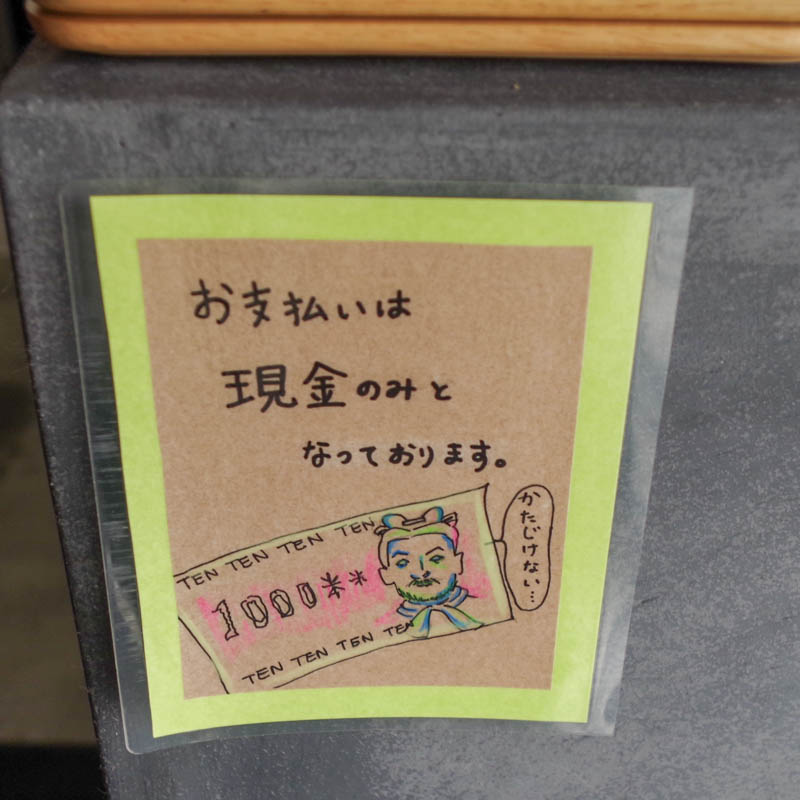 お支払いは
現金のみと
なっております。
かたじけない…
TEN TEN TEN TEN
1000**
TEN TEN TEN TEN